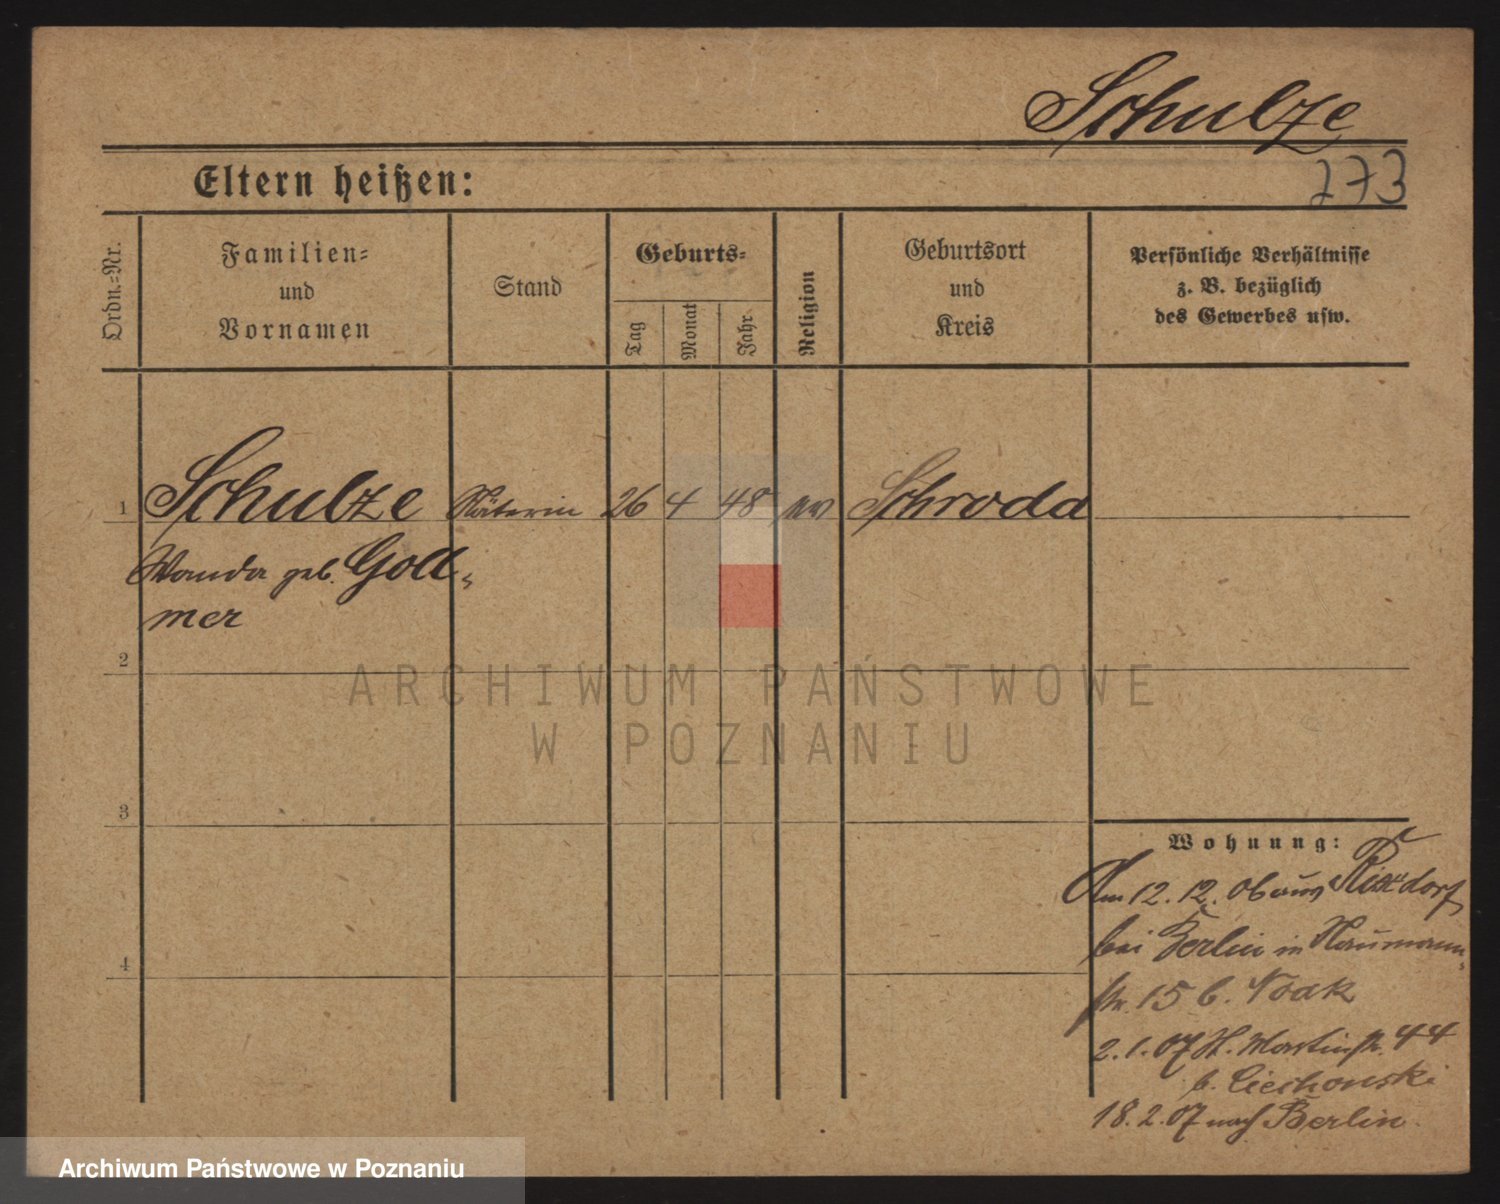 Schulze
273
Eltern heißen:
Ordn.=Nr.
Familien=
und
Vornamen
Stand
Geburts=
Tag
Monat
Jahr
Religion
Geburtsort
und
Kreis
Persönliche Verhältnisse
z. B. bezüglich
des Gewerbes usw.
1 Schulze Näterin 26 4 48 ev Schroda
Wanda geb. Goll-
mer
2
3
4
Wohnung:
Am 12.12.06 aus Rixdorf
bei Berlin in Naumann-
str. 15 b. Noak
2.1.07 St. Martinstr. 44
b. Ciechonski
18.2.07 nach Berlin.
ARCHIWUM PAŃSTWOWE
W POZNANIU
Archiwum Państwowe w Poznaniu